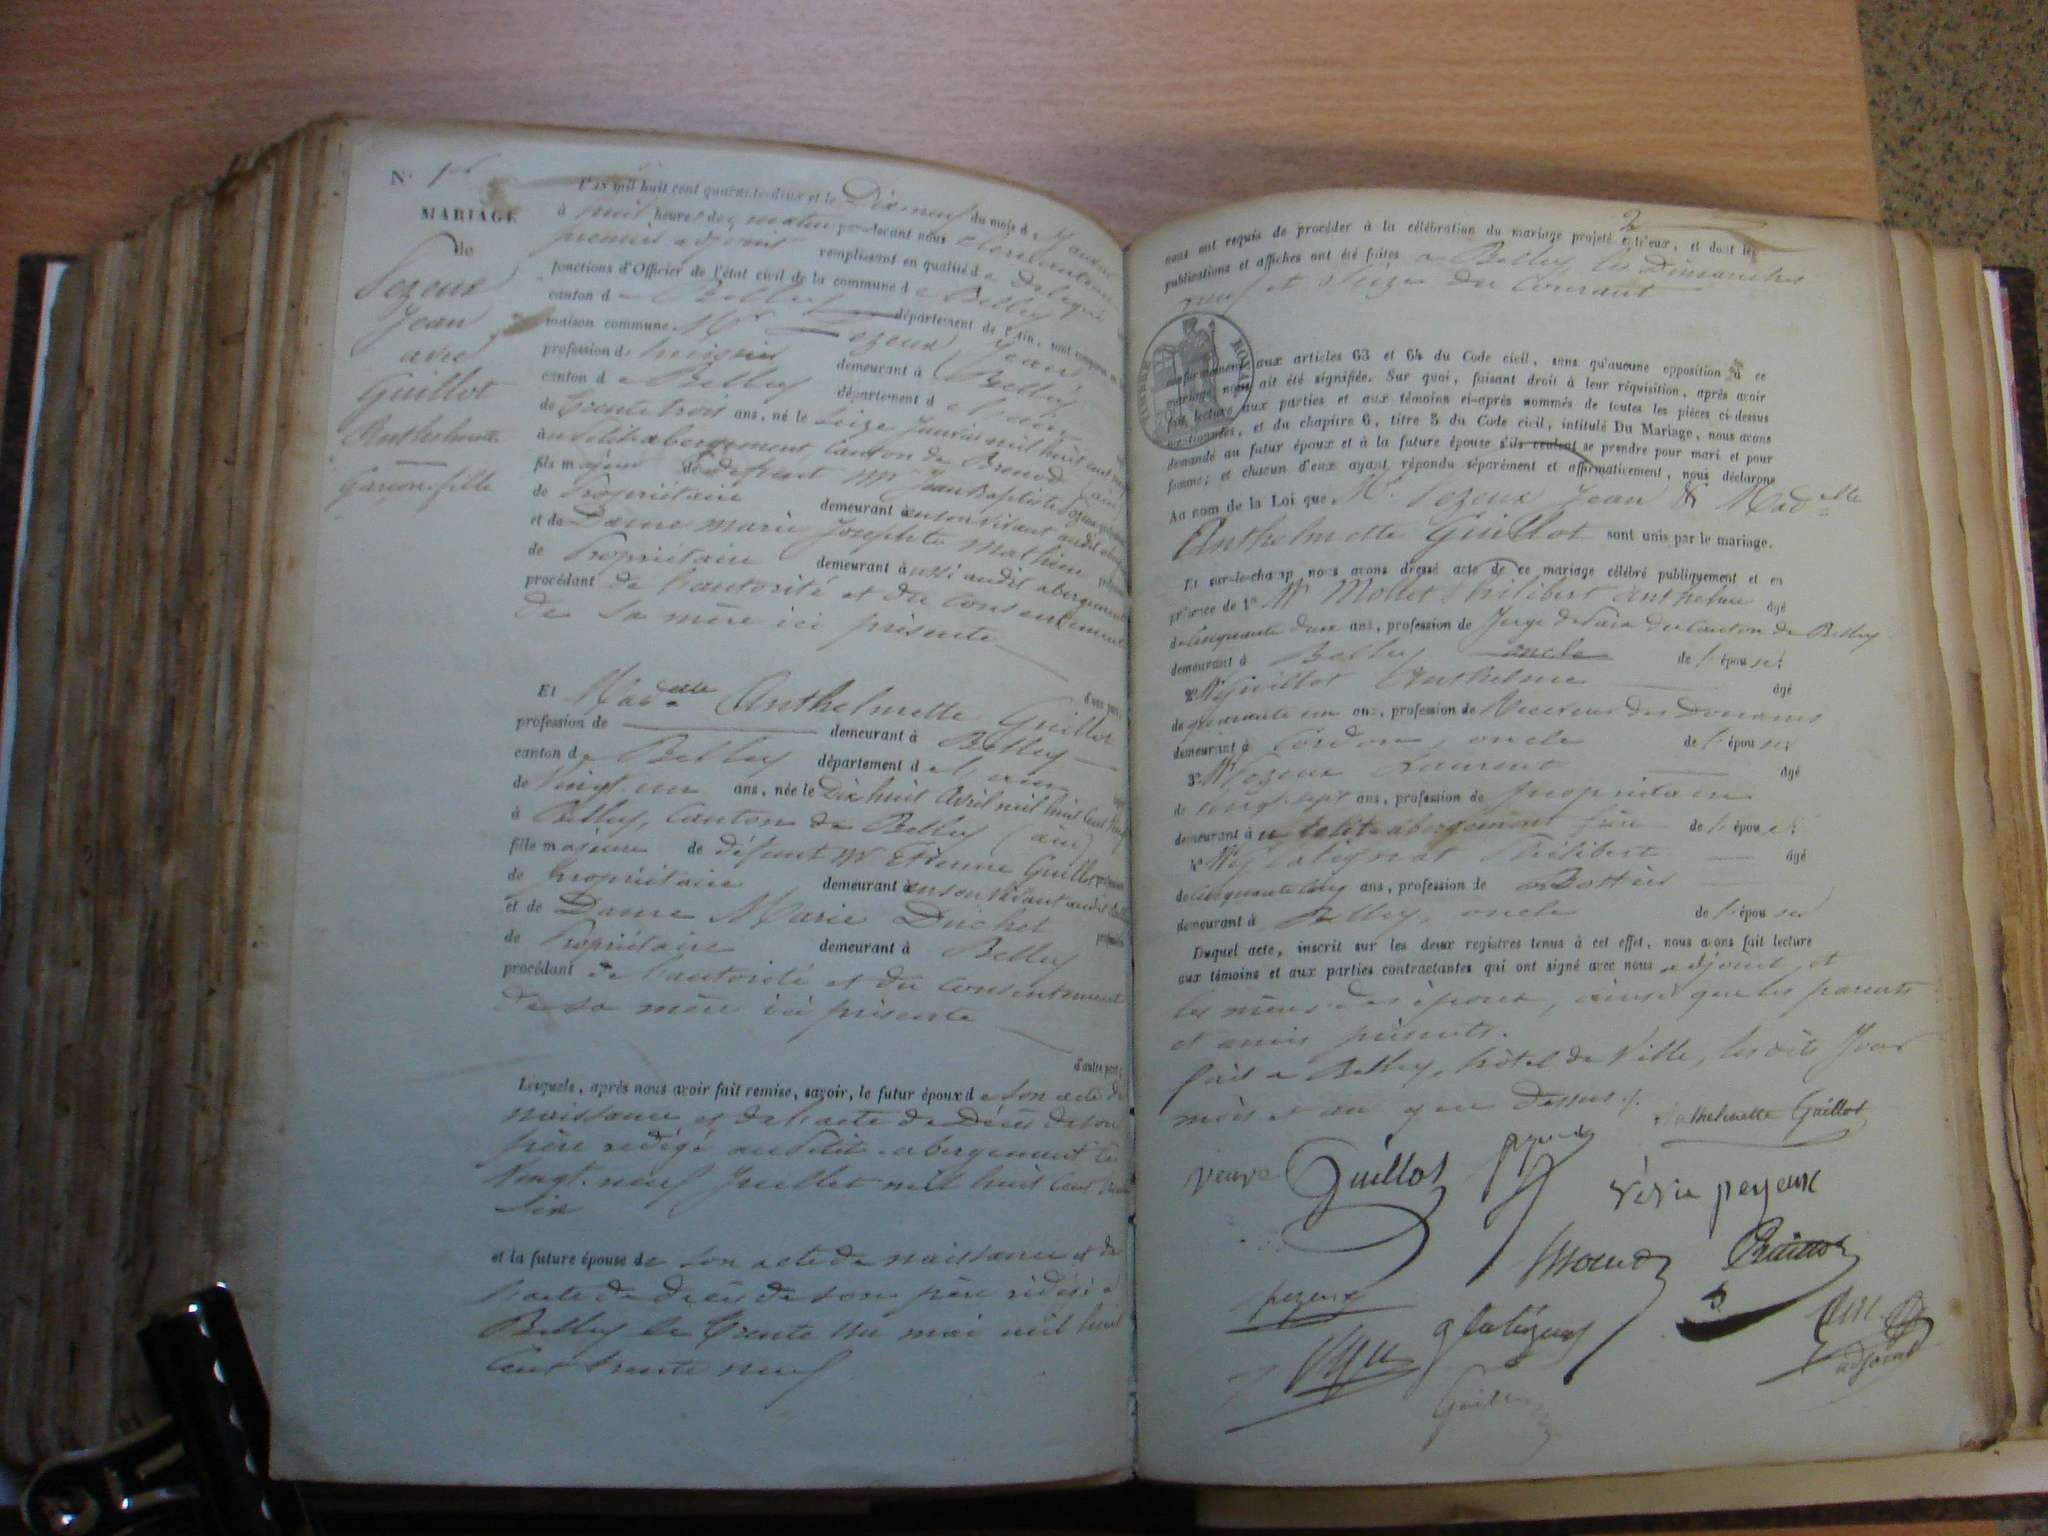 N° 1er
MARIAGE
de
Pezeux
Jean
avec
Guillot
Anthelmette
Garçon-fille
L'an mil huit cent quarante-deux et le Dixneuf du mois de Janvier
à huit heures du matin par devant nous
premier adjoint remplissant en qualité de délégué
fonctions d'Officier de l'état civil de la commune de Belley
canton de Belley département de l'Ain, sont comparus en
maison commune Mr Pezeux Jean
profession de demeurant à Belley
canton de Belley département de l'ain
de trente trois ans, né le Seize Janvier mil huit cent neuf
au Petit abergement, Canton de Brenod (ain)
fils majeur de défunt Mr Jean Baptiste Pezeux
de Propriétaire demeurant en son vivant audit
et de Dame Marie Josephte Mathieu
de Propriétaire demeurant aussi audit abergement
procédant de l'autorité et du consentement
de sa mère ici présente
d'une part;
Et Madelle Anthelmette Guillot
profession de demeurant à Belley
canton de Belley département de l'ain
de Vingt-un ans, née le Dix huit Avril mil huit cent vingt
à Belley, Canton de Belley (ain)
fille majeure de défunt Mr Etienne Guillot
de Propriétaire demeurant en son vivant audit Belley
et de Dame Marie Duchet
de Propriétaire demeurant à Belley
procédant de l'autorité et du consentement
de sa mère ici présente
d'autre part;
Lesquels, après nous avoir fait remise, savoir, le futur époux de son acte de
naissance et de l'acte de Décès de son
père rédigé au Petit-abergement le
Vingt-neuf Juillet mil huit cent
six
et la future épouse de son acte de naissance et de
l'acte de décès de son père rédigé à
Belley le trente un mai mil huit
cent trente neuf
2
nous ont requis de procéder à la célébration du mariage projeté entr'eux, et dont les
publications et affiches ont été faites à Belley, les Dimanches
neuf et seize du Courant
TIMBRE ROYAL
conformément aux articles 63 et 64 du Code civil, sans qu'aucune opposition à ce
mariage nous ait été signifiée. Sur quoi, faisant droit à leur réquisition, après avoir
fait lecture aux parties et aux témoins ci-après nommés de toutes les pièces ci-dessus
mentionnées, et du chapitre 6, titre 5 du Code civil, intitulé Du Mariage, nous avons
demandé au futur époux et à la future épouse s'ils veulent se prendre pour mari et pour
femme; et chacun d'eux ayant répondu séparément et affirmativement, nous déclarons
Au nom de la Loi que Mr Pezeux Jean & Madelle
Anthelmette Guillot sont unis par le mariage.
Et sur-le-champ nous avons dressé acte de ce mariage célébré publiquement et en
présence de 1° Mr Mollet Philibert Anthelme âgé
de Cinquante deux ans, profession de Juge de Paix du Canton de Belley
demeurant à Belley oncle de l'épouse;
2° Mr Guillot Anthelme âgé
de quarante un ans, profession de Receveur des Douanes
demeurant à Cordon, oncle de l'épouse
3° Mr Pezeux Laurent âgé
de vingt sept ans, profession de propriétaire
demeurant à au Petit-abergement frère de l'époux;
4° Mr Glatignat Philibert âgé
de Cinquante cinq ans, profession de
demeurant à Belley, oncle de l'épouse
Duquel acte, inscrit sur les deux registres tenus à cet effet, nous avons fait lecture
aux témoins et aux parties contractantes qui ont signé avec nous adjoint, et
les mères des époux, ainsi que les parents
et amis présents.
fait à Belley, hôtel de Ville, les dits Jour
mois et an que Dessus.
Anthelmette Guillot
veuve Guillot
pezeux
Guillot
adjoint